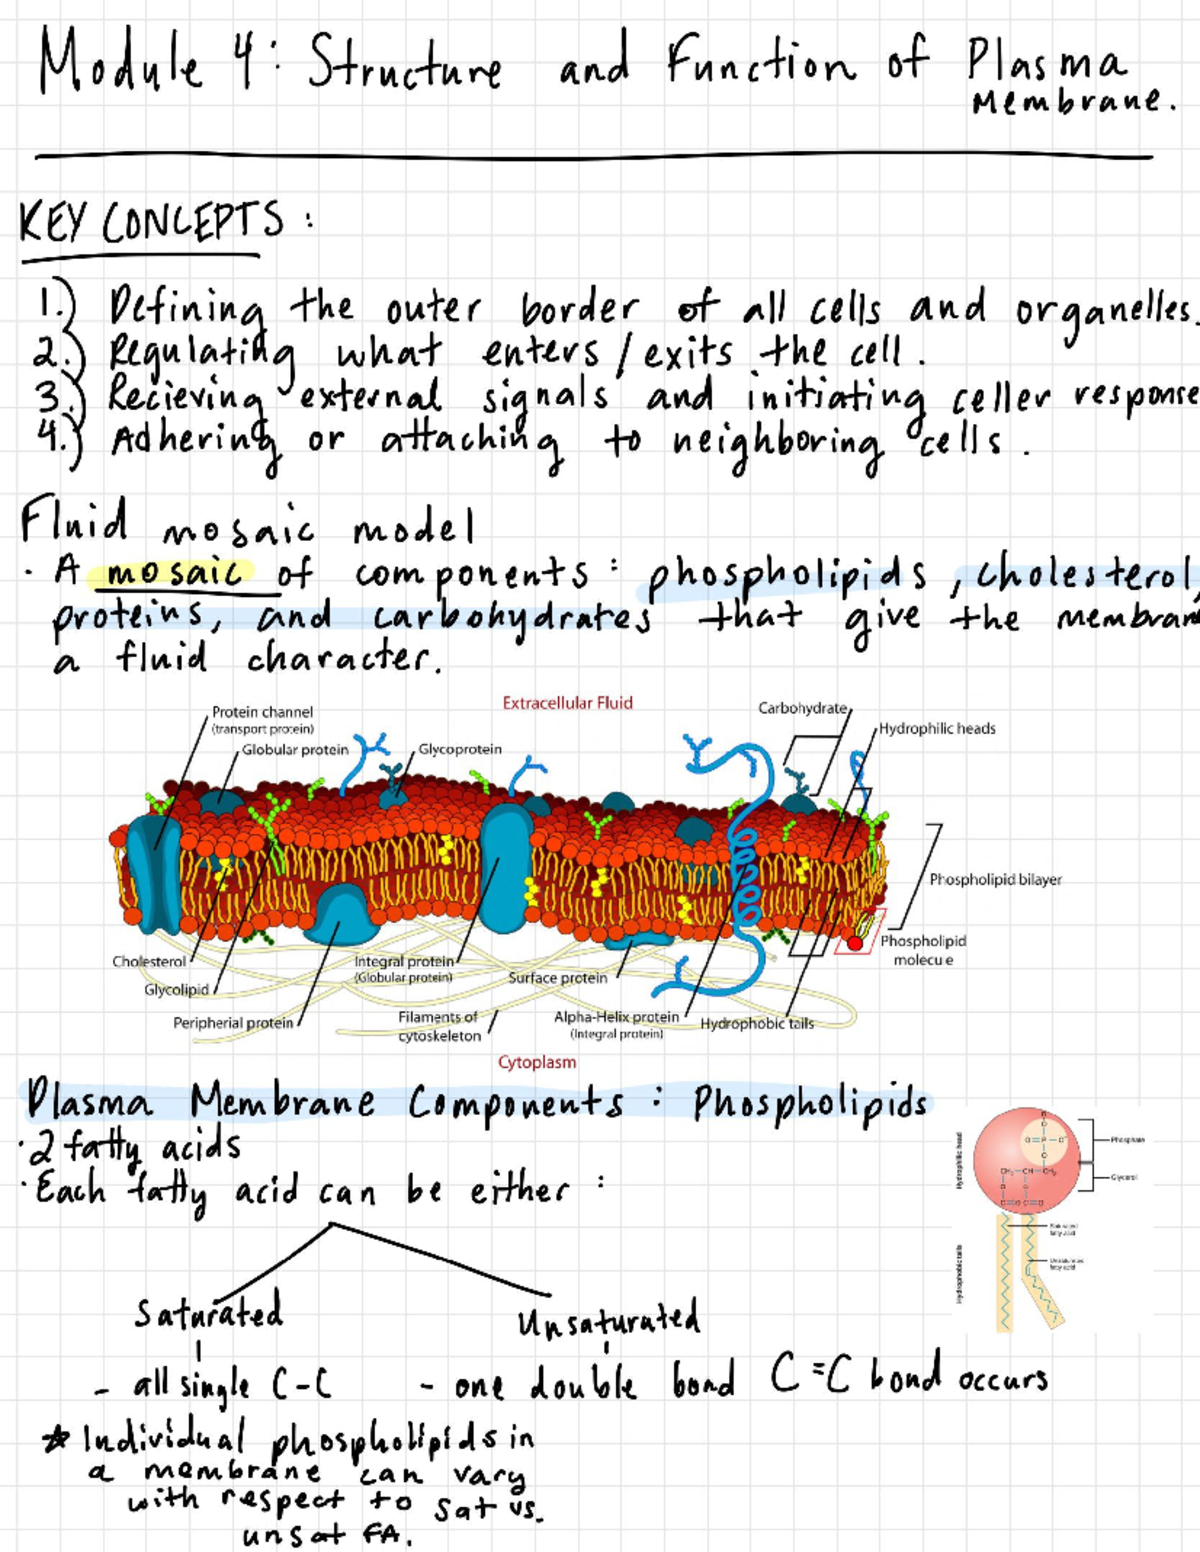 Module 4: Structure and Function of Plasma
Membrane.
KEY CONCEPTS :
1.) Defining the outer border of all cells and organelles.
2.) Regulating what enters / exits the cell.
3.) Recieving external signals and initiating celler response
4.) Adhering or attaching to neighboring cells.
Fluid mosaic model
· A mosaic of components : phospholipids , cholesterol,
proteins, and carbohydrates that give the membran
a fluid character.
Extracellular Fluid
Protein channel
(transport protein)
Globular protein
Glycoprotein
Carbohydrate
Hydrophilic heads
Phospholipid bilayer
Phospholipid
molecu e
Cholesterol
Glycolipid
Peripherial protein
Integral protein
(Globular protein)
Filaments of
cytoskeleton
Surface protein
Alpha-Helix protein
(Integral protein)
Hydrophobic tails
Cytoplasm
Plasma Membrane Components : Phospholipids
· 2 fatty acids
· Each fatty acid can be either :
Hydrophilic head
Phosphate
Glycerol
Saturated
fatty acid
Unsaturated
fatty acid
Hydrophobic tails
Saturated
Unsaturated
- all single C-C
- one double bond C=C bond occurs
☆ Individual phospholipids in
a membrane can vary
with respect to sat vs.
unsat FA.